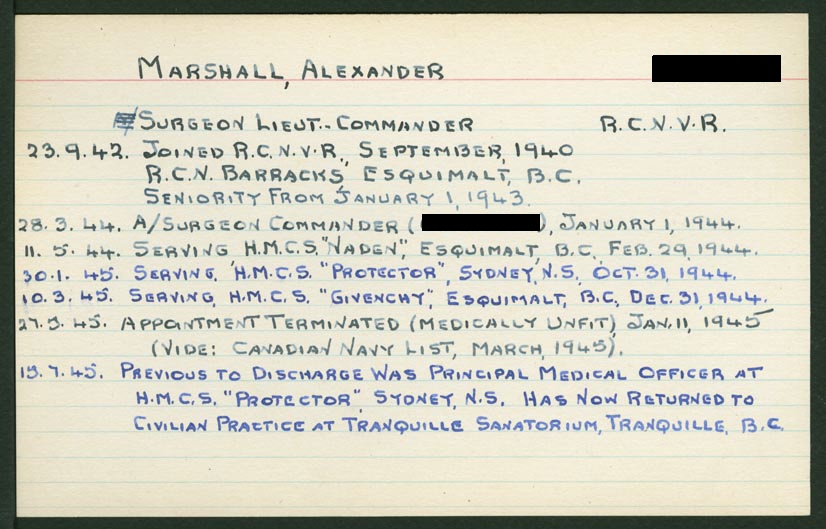 MARSHALL, ALEXANDER
SURGEON LIEUT.-COMMANDER R.C.N.V.R.
23.9.42. JOINED R.C.N.V.R., SEPTEMBER, 1940
R.C.N. BARRACKS, ESQUIMALT, B.C.
SENIORITY FROM JANUARY 1, 1943.
28.3.44. A/SURGEON COMMANDER ( ), JANUARY 1, 1944.
11.5.44. SERVING, H.M.C.S. "NADEN", ESQUIMALT, B.C., FEB. 29, 1944.
30.1.45. SERVING, H.M.C.S. "PROTECTOR", SYDNEY, N.S., OCT. 31, 1944.
10.3.45. SERVING, H.M.C.S. "GIVENCHY", ESQUIMALT, B.C., DEC. 31, 1944.
27.3.45. APPOINTMENT TERMINATED (MEDICALLY UNFIT) JAN. 11, 1945
(VIDE: CANADIAN NAVY LIST, MARCH, 1945).
15.7.45. PREVIOUS TO DISCHARGE WAS PRINCIPAL MEDICAL OFFICER AT
H.M.C.S. "PROTECTOR", SYDNEY, N.S. HAS NOW RETURNED TO
CIVILIAN PRACTICE AT TRANQUILLE SANATORIUM, TRANQUILLE, B.C.